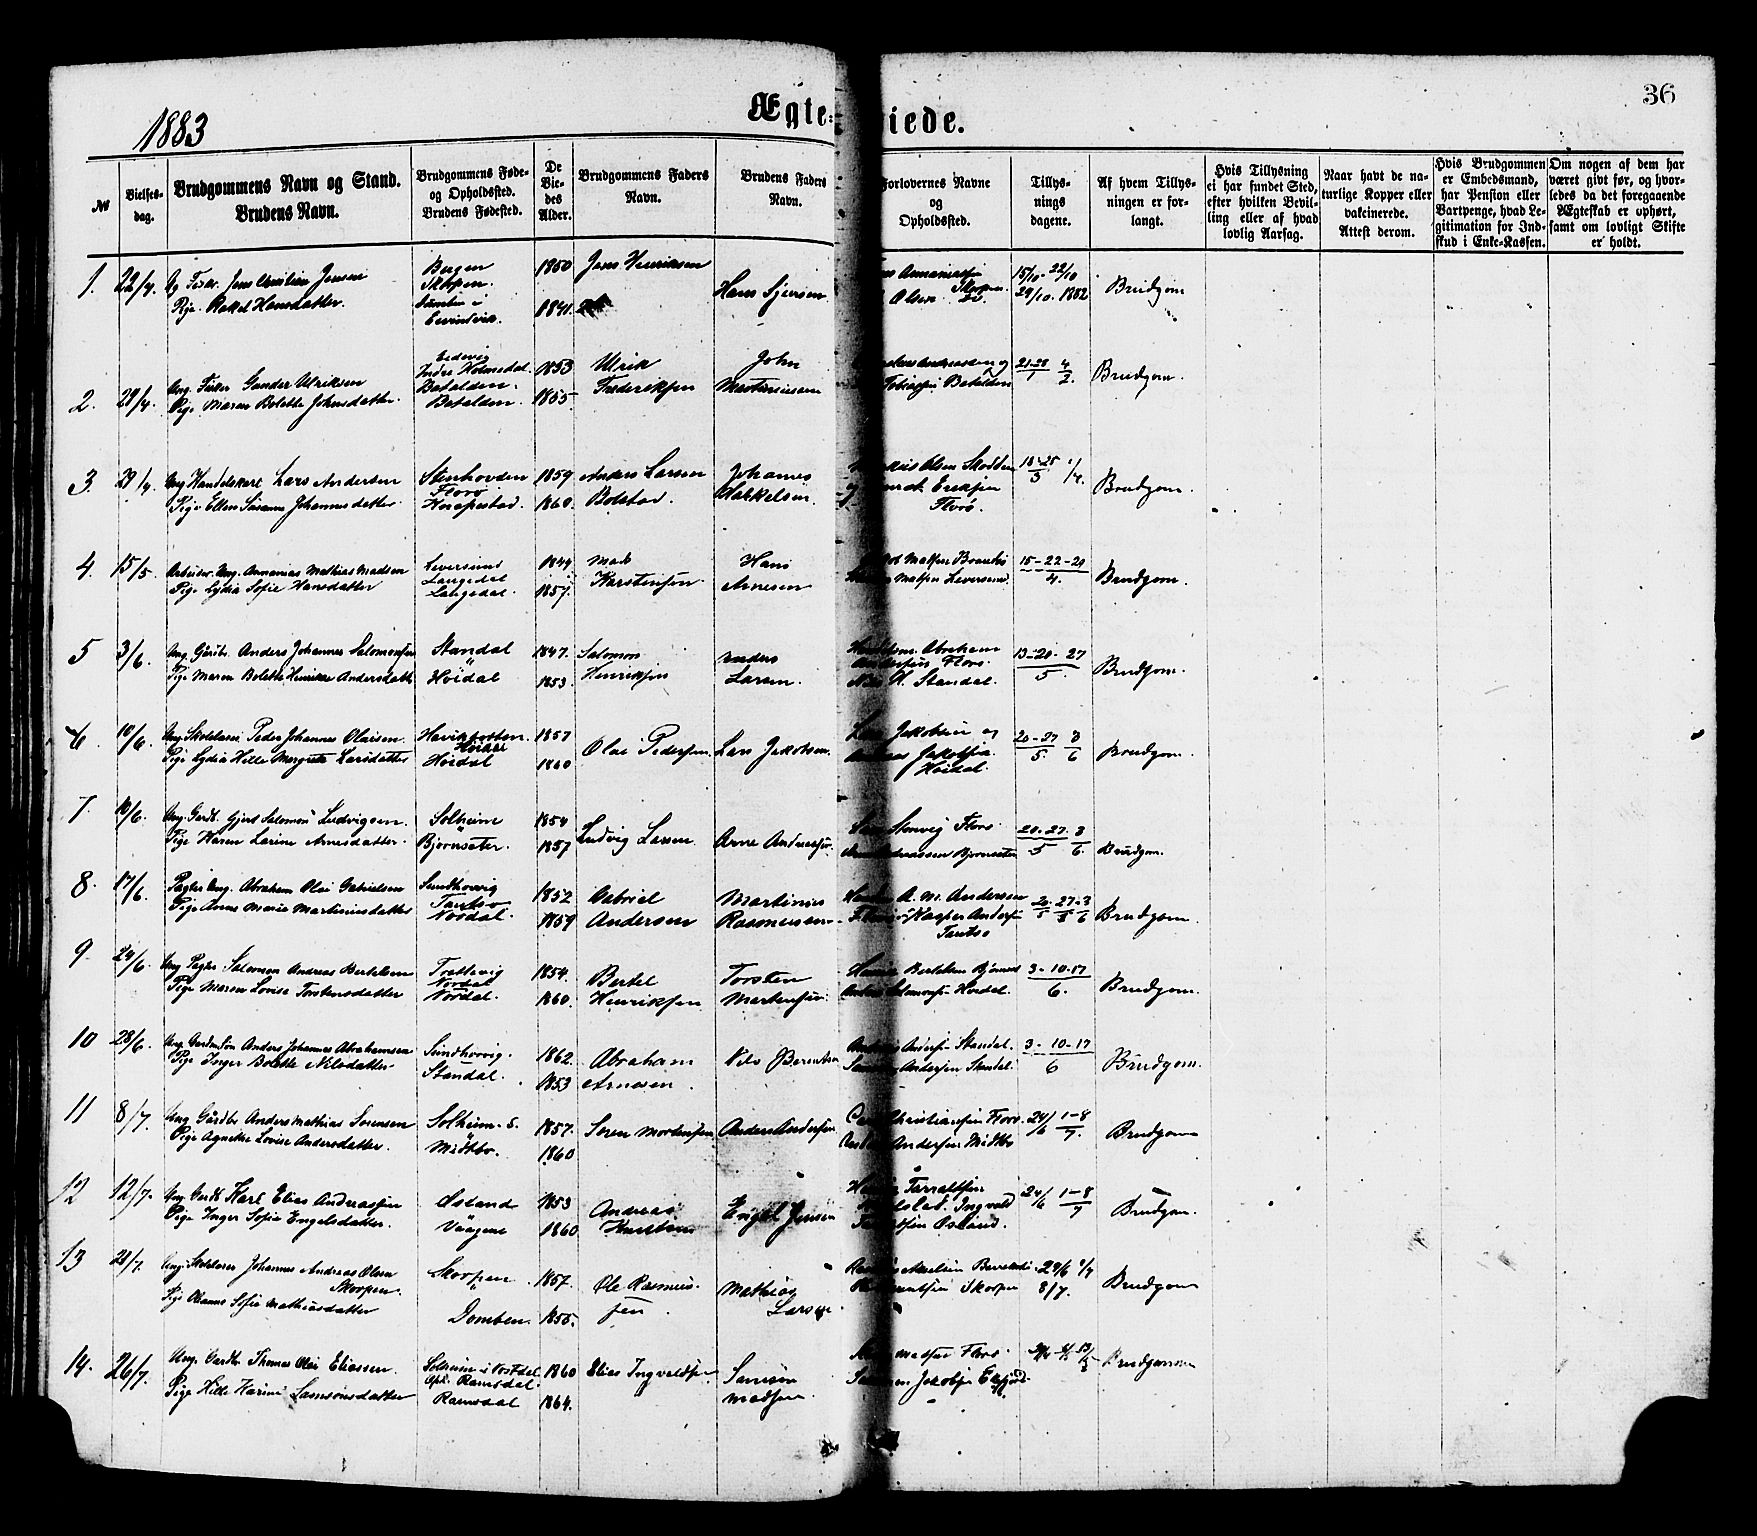 1883
Ægte=viede.
36
№
Vielses-
dag.
Brudgommens Navn og Stand.
Brudens Navn.
Brudgommens Føde-
og Opholdssted.
Brudens Fødested.
De
Vie-
des
Alder.
Brudgommens Faders
Navn.
Brudens Faders
Navn.
Forlovernes Navne
og
Opholdssted.
Tillys-
nings
dagene.
Af hvem Tillys-
ningen er for-
langt.
Hvis Tillysning
ei har fundet Sted,
efter hvilken Bevil-
ling eller af hvad
lovlig Aarsag.
Naar havt de na-
turlige Kopper eller
vakcinerede.
Attest derom.
Hvis Brudgommen
er Embedsmand,
har Pension eller
Vartpenge, hvad Le-
gitimation for Ind-
skud i Enke-Kassen.
Om nogen af dem har
været givt før, og hvor-
ledes da det foregaaende
Ægteskab er ophørt,
samt om lovligt Skifte
er holdt.
1. 22/4. Jens Christian Jensen
Pige Rakel Hansdatter.
Bergen
Skorpen.
Eivindvik.
1850
1841.
Jens Henriksen
Hans
15/10 - 22/10
29/10. 1882
Brudgom
2. 29/4. Ung. Fisker Gunder Ulriksen
Pige Maren Bolette Johnsdatter.
Batalden.
Batalden.
1853
1855.
Ulrik
Frederiksen
John
Martinusen
Tobiassen Batalden
21-28/1 4/2.
Brudgom.
3. 29/4. Ung. Handelskarl Lars Andersen
Pige Ellen Susanne Johannesdatter
Stenhovden
Florø
1859
1860.
Anders Larsen
Botolav.
Johannes
Olsen
Eriksen
Florø.
18-25/3 1/4.
Brudgom.
4. 15/5. Arbeider Ung. Annanias Mathias Madsen
Pige Lydia Sofie Hansdatter
Leversund
Langedal
Langedal.
1849
1857.
Mads
Karstensen
Hans
Arnesen
Madsen Leversund.
15-22-29/4.
Brudgom.
5 3/6. Ung. Gårdbr. Anders Johannes Salomonsen
Pige Maren Bolette Henrikke Andersdatt.
Standal
"
Høidal
1847.
1853.
Salomon
Henriksen
Anders
Larsen.
Abraham
Andersen Florø.
H. Standal.
13-20-27/5.
Brudgom.
6. 10/6. Ung. Skolelærer Peder Johannes Olaisen
Pige Lydia Hille Margrete Larsdatter
Høidal
Høidal
1857
1860
Olai Pedersen
Lars Jakobsen.
Lars Jakobsen og
Jakobsen
Høidal.
20-27/5. 3/6
Brudgom.
7. 10/6. Ung. Gardb. Gjert Salomon Ludvigsen.
Pige Karen Larine Arnesdatter.
Solheim
"
Bjørnsæter.
1854
1857
Ludvig Larsen
Arne Andreassen.
Stenvig Florø.
Andreassen Bjørnsæter
20.27/5 3/6.
Brudgom.
8. 17/6. Pagter Ung. Abraham Olai Gabrielsen
Pige Anne Marie Martinusdatter
Sundhovvig
Tansø
Nordal.
1852
1859
Gabriel
Andersen
Martinus
Rasmussen
A. M. Andersen
Kasper Andersen
Tansø
20/5 27/5 3/6
Brudgom.
9. 24/6. Ung. Pagter Salomon Andreas Bertelsen
Pige Maren Lovise Torstensdatter
Nordal
Nordal.
1854.
1860.
Bertel
Henriksen
Torsten
Martensen.
Bertelsen
Salomonsen Høidal.
3-10-17/6.
Brudgom.
10 28/6. Ung. Gardmdsøn Anders Johannes Abrahamsen
Pige Inger Bolette Nilsdatter
Sundhovvig.
Standal.
1862.
1853
Abraham
Arnesen.
Nils J. Berentsen
Andersen Standal.
Andersen Standal.
3-10-17/6
Brudgom.
11 8/7. Ung. Gårdbr. Anders Mathias Sørensen
Pige Agnethe Lovise Andersdatter.
Solheim. S.
"
Midtbø.
1857.
1860
Søren Mortensen
Anders Andersen.
Christiansen Florø
Andersen Midtbø
24/6 1-8/7.
Brudgom
12 12/7. Ung. Gardb. Karl Elias Andreassen
Pige Inger Sofie Engelsdatter.
Osland
Vaagene
1853
1860
Andreas
Knutsen
Engel Jensen
Ingvald
Osland.
24/6 1-8/7
Brudgom.
13 22/7. Ung. Skolelærer Johannes Andreas Olsen
Skorpen.
Pige Oleanne Sofie Mathiasdatter
Skorpen
"
Domben.
1857.
1855.
Ole Rasmus-
sen
Mathias
Larsen.
Skorpen
24/6 1/7
8/7.
Brudgom
14. 26/7. Ung. Gardb. Thomas Olai Eliassen.
Pige Hille Karine Samsonsdatter
Solheim i Vestdal
Opl. Ramsdal.
Ramsdal
1860
1864.
Elias Ingvaldsen.
Samson
Madsen
Madsen Florø.
Jakobsen
Brudgommen